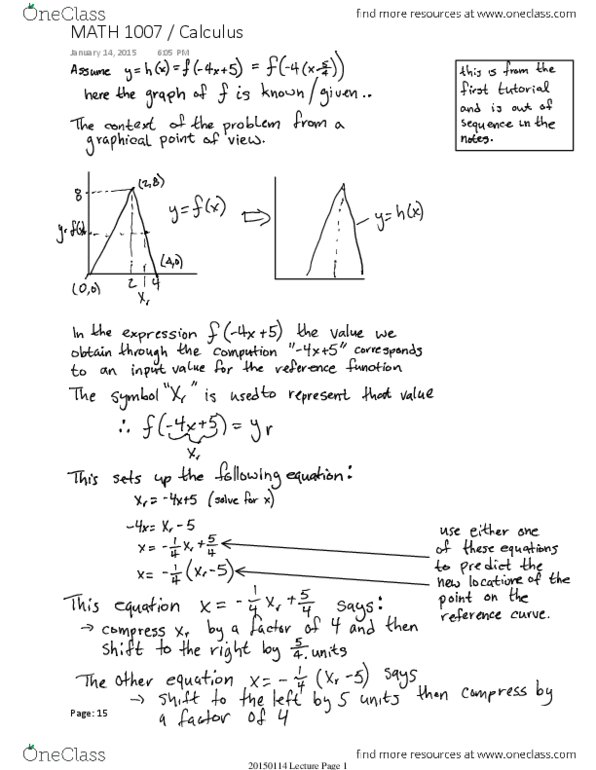 OneClass
find more resources at www.oneclass.com
MATH 1007 / Calculus
January 14, 2015 6:05 PM
Assume y=h(x)=f(-4x+5) = f(-4(x-5/4))
here the graph of f is known/given..
this is from the
first tutorial
and is out of
sequence in the
notes.
The context of the problem from a
graphical point of view.
8
(2,8)
y=f(x)
⇨
y=h(x)
(4,0)
(0,0)
2
4
Xr
In the expression f(-4x+5) the value we
obtain through the compution "-4x+5" corresponds
to an input value for the reference function
The symbol "Xr" is used to represent that value
∴ f(-4x+5) = yr
Xr
This sets up the following equation:
Xr = -4x+5 (solve for x)
-4x = Xr - 5
x = -1/4 Xr + 5/4
x = -1/4 (Xr - 5)
use either one
of these equations
to predict the
new locations of the
point on the
reference curve.
This equation x = -1/4 Xr + 5/4 says:
→ compress Xr by a factor of 4 and then
shift to the right by 5/4 units
The other equation x = -1/4 (Xr - 5) says
→ shift to the left by 5 units then compress by
a factor of 4
Page: 15
OneClass
20150114 Lecture Page 1
find more resources at www.oneclass.com